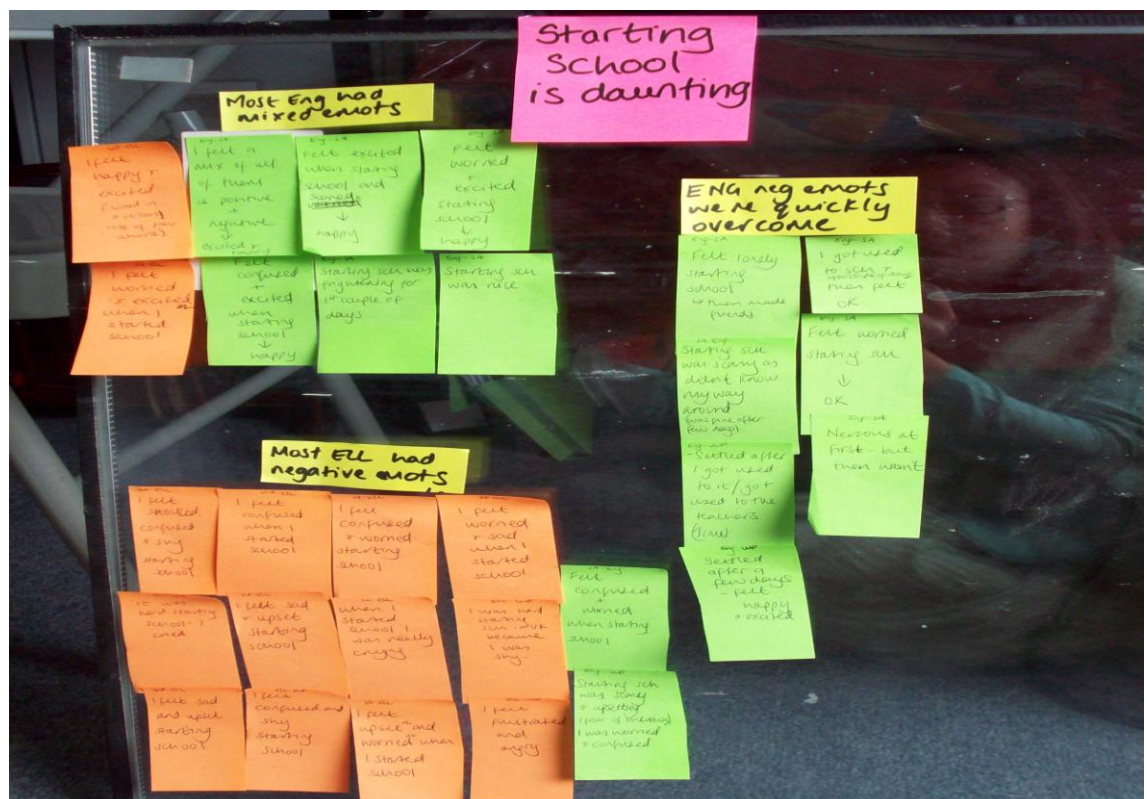 Starting
School
is daunting
Most Eng had
mixed emots
I felt
happy +
excited
I felt a
mix of all
of them
ie positive
+
negative
↓
excited +
happy
Felt excited
when starting
school and
scared
↓
happy
Felt
worried
+
excited
starting
school
↓
happy
I felt
worried
+ excited
when I
started
school
Felt
confused
+
excited
when
starting
school
↓
happy
Starting sch was
frightening for
1st couple of
days
Starting sch
was nice
ENG neg emots
were quickly
overcome
Felt lonely
starting
school
↳ then made
friends
I got used
to sch +
then felt
OK
Starting sch
was scary as
didn't know
my way
around
(was fine after
few days)
Felt worried
starting sch
↓
OK
- Settled after
I got used
to it / got
used to the
teachers
(Time)
Nervous at
first - but
then wasn't
Settled
after a
few days
- felt
happy
+ excited
Most ELL had
negative emots
I felt
shocked
confused
+ shy
starting
school
I felt
confused
when I
started
school
I felt
confused
+ worried
starting
school
I felt
worried
+ sad
when I
started
school
It was
hard starting
school - I
cried
I felt sad
+ upset
starting
school
When I
started
school I
was really
crying
I was hard
starting
sch in UK
because
I was
shy -
Felt
confused
+
worried
when starting
school
I felt sad
and upset
starting
school
I felt
confused and
shy
starting
school
I felt
upset and
worried when
I started
school
I felt
frustrated
and
angry
Starting sch
was scary
+ upsetting
I was worried
+ confused